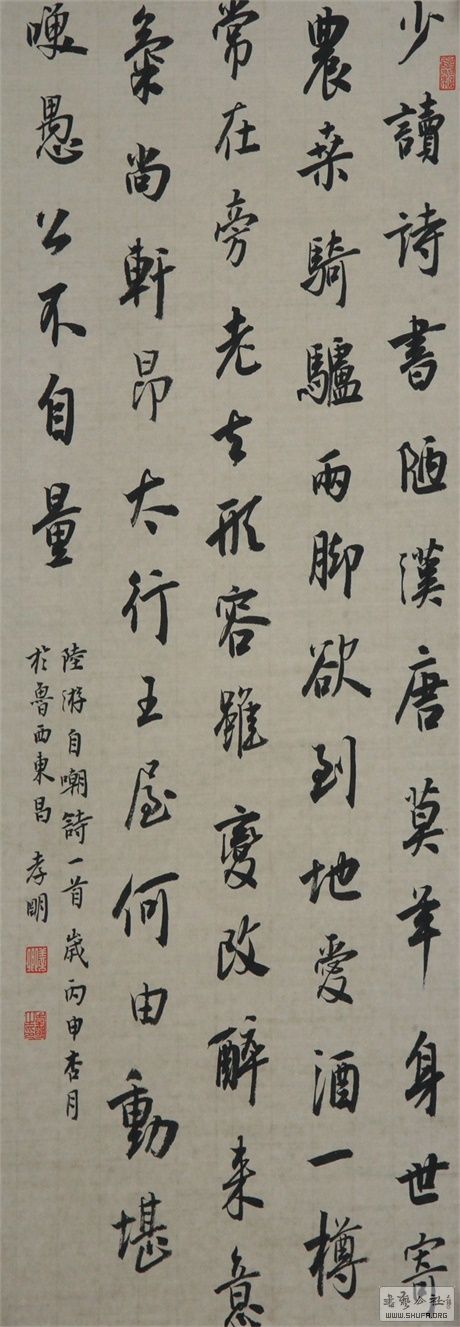 少讀詩書陋漢唐莫年身世寄
農桑騎驢兩脚欲到地愛酒一樽
常在旁老去形容雖變改醉來意
氣尚軒昂太行王屋何由動堪
嘆愚公不自量
陸游自嘲詩一首歲丙申杏月
於魯西東昌 孝明
WWW.SHUFA.ORG